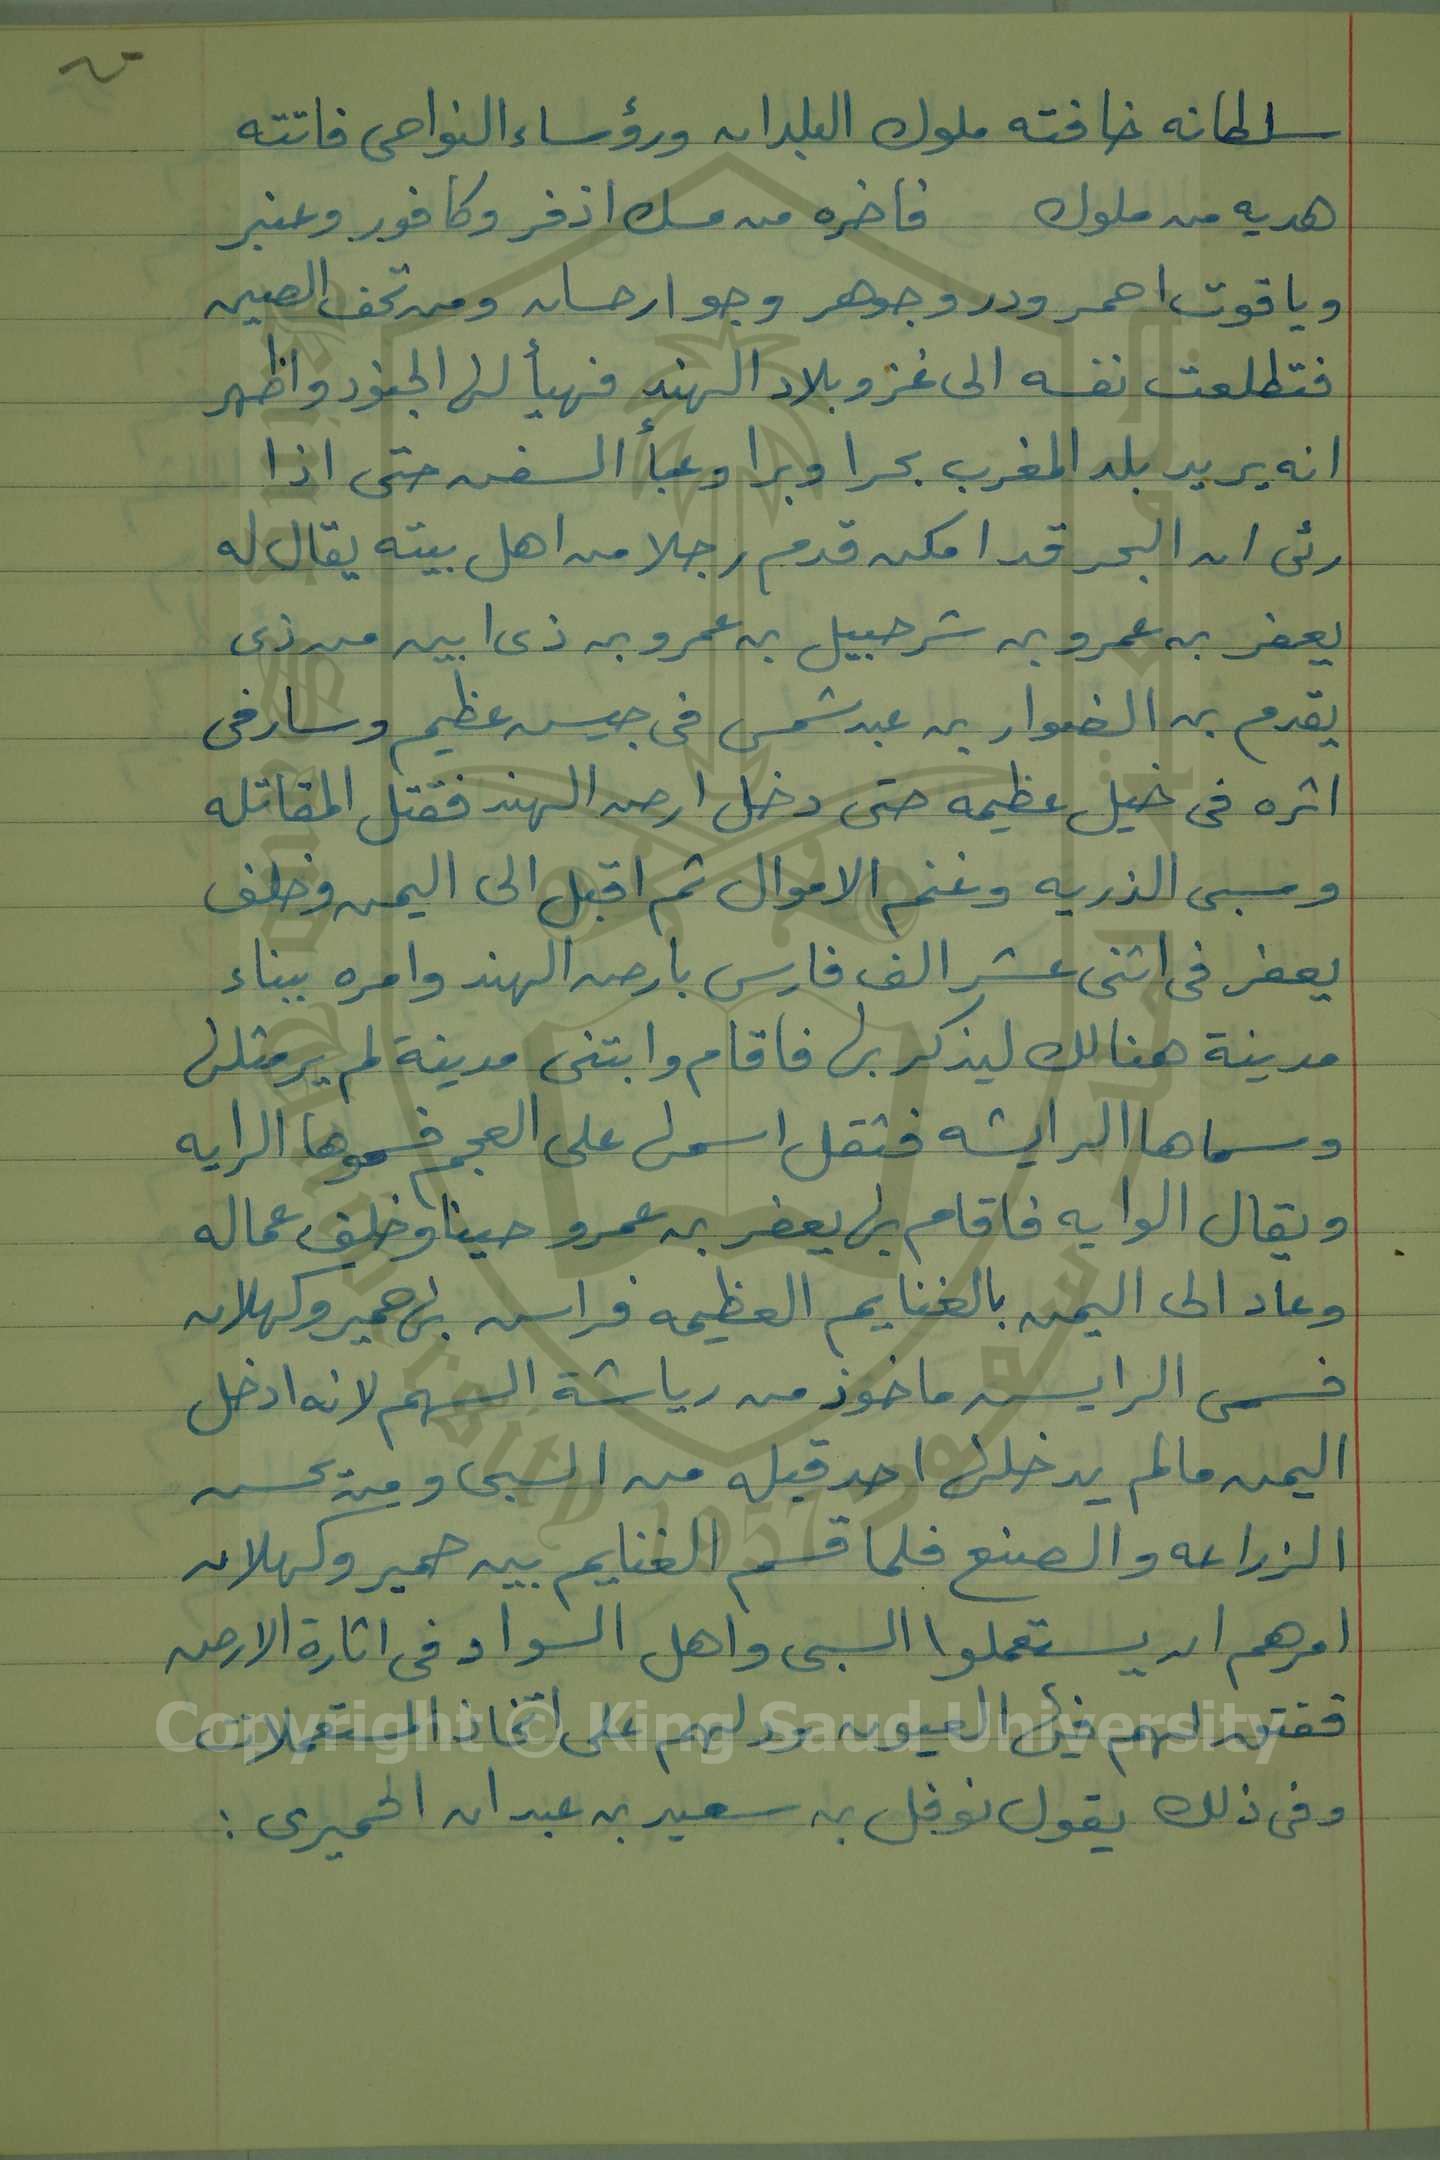 سلطانه خافته ملوك البلدان ورؤساء النواحى فاتته
هديه من ملوك فاخره من مسك اذفر وكافور وعنبر
وياقوت احمر ودر وجوهر وجوار حسان ومن تحف الصين
فتطلعت نفسه الى غزو بلاد الهند فهيأ لها الجنود واظهر
انه يريد بلد المغرب بحرا وبرا وعبأ السفن حتى اذا
رئى ان البحر قد امكن قدم رجلا من اهل بيته يقال له
يعفر بن عمرو بن شرحبيل بن عمرو بن ذى ابين من ذى
يقدم بن الصوار بن عبد شمس فى جيش عظيم وسار فى
اثره فى خيل عظيمه حتى دخل ارض الهند فقتل المقاتله
وسبى الذريه وغنم الاموال ثم اقبل الى اليمن وخلف
يعفر فى اثنى عشر الف فارس بارض الهند وامره ببناء
مدينة هنالك ليذكر بها فاقام وابتنى مدينة لم ير مثلها
وسماها الرايشه فثقل اسمها على العجم فسموها الرايه
ويقال الوايه فاقام بها يعفر بن عمرو حينا وخلف عماله
وعاد الى اليمن بالغنايم العظيمه فراش بها حمير وكهلان
فسمى الرايش ماخوذ من رياشة السهم لانه ادخل
اليمن مالم يدخلها احد قبله من السبى ومن يحسن
الزراعه والصنع فلما قسم الغنايم بين حمير وكهلان
امرهم ان يستعملوا السبى واهل السواد فى اثارة الارض
ففتق لهم العيون ودلهم على اتخاذ المستعملات
وفى ذلك يقول نوفل بن سعيد بن عبدان الحميرى :
Copyright © King Saud University
King Saud University
جامعة الملك سعود
1957